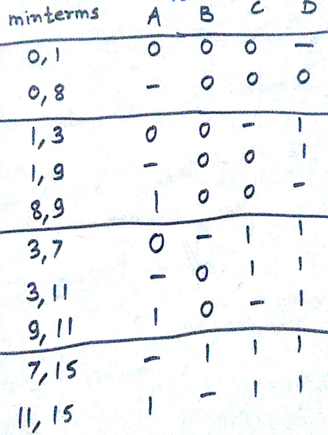 minterms A B C D
0,1 0 0 0 –
0,8 – 0 0 0
1,3 0 0 – 1
1,9 – 0 0 1
8,9 1 0 0 –
3,7 0 – 1 1
3,11 – 0 1 1
9,11 1 0 – 1
7,15 – 1 1 1
11,15 1 – 1 1